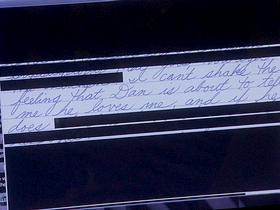 I can't shake the
feeling that Dan is about to
me he loves me, and if he
does